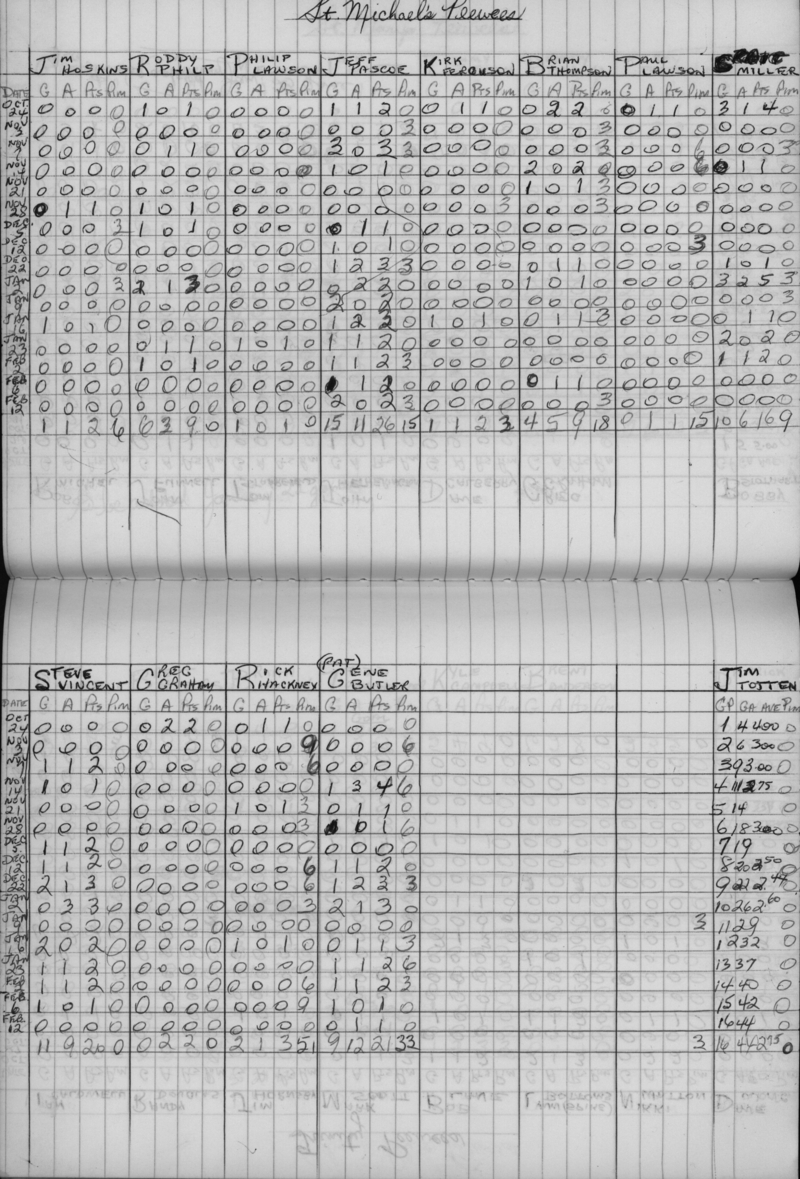 St. Michael's Peewees
JIM HOSKINS RODDY PHILP PHILIP LAWSON JEFF PASCOE KIRK FERGUSON BRIAN THOMPSON PAUL LAWSON MILLER
DATE G A Pts Pim G A Pts Pim G A Pts Pim G A Pts Pim G A Pts Pim G A Pts Pim G A Pts Pim G A Pts Pim
Oct 24 0 0 0 0 1 0 1 0 0 0 0 0 1 1 2 0 0 1 1 0 0 2 2 0 0 1 1 0 3 1 4 0
Nov 3 0 0 0 0 0 0 0 0 0 0 0 0 0 0 0 3 0 0 0 0 0 0 0 3 0 0 0 0 0 0 0 0
Nov 7 0 0 0 0 0 1 1 0 0 0 0 0 3 0 3 3 0 0 0 0 0 0 0 3 0 0 0 6 0 0 0 3
Nov 14 0 0 0 0 0 0 0 0 0 0 0 0 1 0 1 0 0 0 0 0 2 0 2 0 0 0 0 6 0 1 1 0
Nov 21 0 0 0 0 0 0 0 0 0 0 0 0 0 0 0 0 0 0 0 0 1 0 1 3 0 0 0 0 0 0 0 0
Nov 28 0 1 1 0 1 0 1 0 0 0 0 0 0 0 0 0 0 0 0 3 0 0 0 3 0 0 0 0 0 0 0 0
Dec 5 0 0 0 3 1 0 1 0 0 0 0 0 0 1 1 0 0 0 0 0 0 0 0 0 0 0 0 0 0 0 0 0
Dec 12 0 0 0 0 0 0 0 0 0 0 0 0 1 0 1 0 0 0 0 0 0 0 0 0 0 0 0 3 0 0 0 0
Dec 22 0 0 0 0 0 0 0 0 0 0 0 0 1 2 3 3 0 0 0 0 0 1 1 0 0 0 0 0 1 0 1 0
Jan 2 0 0 0 3 2 1 3 0 0 0 0 0 0 2 2 0 0 0 0 0 1 0 1 0 0 0 0 0 3 2 5 3
Jan 9 0 0 0 0 0 0 0 0 0 0 0 0 2 0 2 0 0 0 0 0 0 0 0 0 0 0 0 0 0 0 0 3
Jan 16 1 0 1 0 0 0 0 0 0 0 0 0 1 2 2 0 1 0 1 0 0 1 1 3 0 0 0 0 0 1 1 0
Jan 23 0 0 0 0 0 1 1 0 1 0 1 0 1 1 2 0 0 0 0 0 0 0 0 0 0 0 0 0 2 0 2 0
Feb 2 0 0 0 0 1 0 1 0 0 0 0 0 1 1 2 3 0 0 0 0 0 0 0 0 0 0 0 0 1 1 2 0
Feb 6 0 0 0 0 0 0 0 0 0 0 0 0 1 2 0 0 0 0 0 0 1 1 0 0 0 0 0 0 0 0 0
Feb 12 0 0 0 0 0 0 0 0 0 0 0 0 2 0 2 3 0 0 0 0 0 0 0 3 0 0 0 0 0 0 0 0
1 1 2 6 6 3 9 0 1 0 1 0 15 11 26 15 1 1 2 3 4 5 9 18 0 1 1 15 10 6 16 9
STEVE VINCENT GREG GRAHAM RICK HACKNEY (PAT) GENE BUTLER JIM TOTTEN
DATE G A Pts Pim G A Pts Pim G A Pts Pim G A Pts Pim GP GA AVE Pim
Oct 24 0 0 0 0 0 2 2 0 0 1 1 0 0 0 0 0 1 4 4.00 0
Nov 3 0 0 0 0 0 0 0 0 0 0 0 9 0 0 0 6 2 6 3.00 0
Nov 7 1 1 2 0 0 0 0 0 0 0 0 6 0 0 0 0 3 9 3.00 0
Nov 14 1 0 1 0 0 0 0 0 0 0 0 0 1 3 4 6 4 11 2.75 0
Nov 21 0 0 0 0 0 0 0 0 1 0 1 3 0 1 1 0 5 14 0
Nov 28 0 0 0 0 0 0 0 0 0 0 0 3 1 0 1 6 6 18 3.00 0
Dec 5 1 1 2 0 0 0 0 0 0 0 0 0 0 0 0 0 7 19 0
Dec 12 1 1 2 0 0 0 0 0 0 0 0 6 1 1 2 0 8 20 2.50 0
Dec 22 2 1 3 0 0 0 0 0 0 0 0 6 1 2 3 3 9 22 2.44 0
Jan 2 0 3 3 0 0 0 0 0 0 0 0 3 2 1 3 0 10 26 2.60 0
Jan 9 0 0 0 0 0 0 0 0 0 0 0 0 0 0 0 0 3 11 29 0
Jan 16 2 0 2 0 0 0 0 0 1 0 1 0 0 1 1 3 12 32 0
Jan 23 1 1 2 0 0 0 0 0 0 0 0 0 1 1 2 6 13 37 0
Feb 2 1 1 2 0 0 0 0 0 0 0 0 6 1 1 2 3 14 40 0
Feb 6 1 0 1 0 0 0 0 0 0 0 0 9 1 0 1 0 15 42 0
Feb. 12 0 0 0 0 0 0 0 0 0 0 0 0 0 1 1 0 16 44 0
11 9 20 0 0 2 2 0 2 1 3 51 9 12 21 33 3 16 44 2.75 0